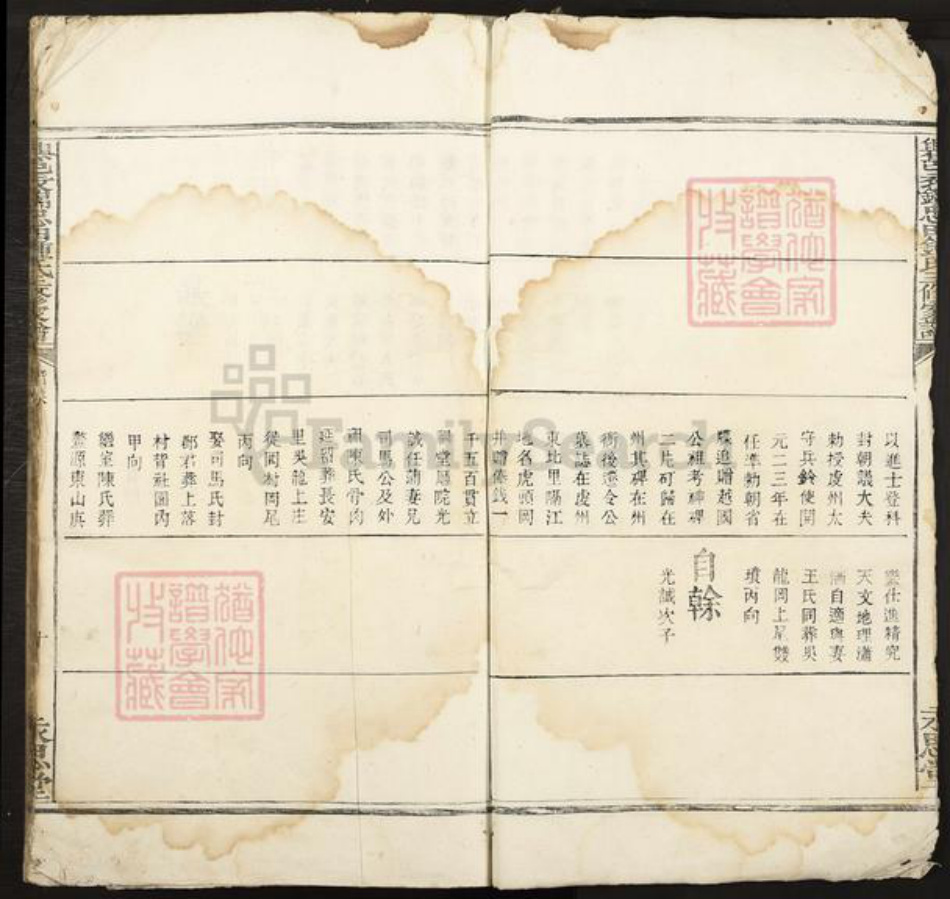 以進士登科
封朝議大夫
勅授虔州太
守兵鈐使開
元二三年在
任準勅朝省
牒追贈越國
公祖考神碑
二片可歸在
州其碑在州
衙後還令公
墓誌在虔州
東北里隔江
地名虎頭岡
并贈俸錢一
千五百貫立
祠堂廳院光
誠任蒲妻兄
司馬公及外
祖陳氏骨肉
延留葬長安
里吳龍上庄
從岡村岡尾
丙向
娶司馬氏封
鄭君葬上落
村背社圖內
甲向
繼室陳氏葬
鰲源東山庚
樂仕進精究
天文地理瀟
洒自適與妻
王氏同葬吳
龍岡上星雙
墳丙向
自餘
光誠次子
永思堂
永思堂
猶他家
譜學會
收藏
猶他家
譜學會
收藏
FamilySearch